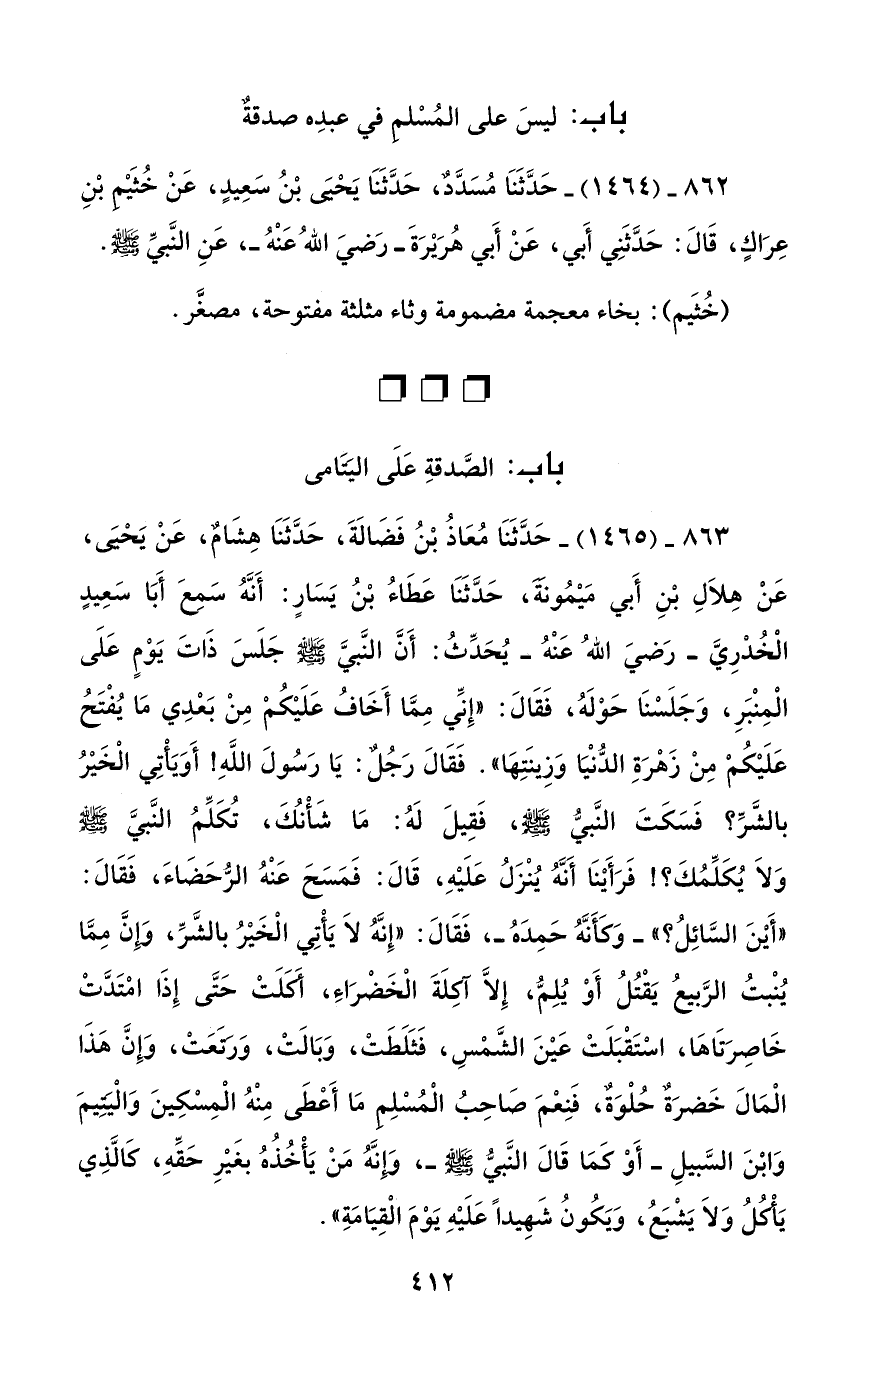 باب: ليسَ على المُسْلمِ في عبدِه صدقةٌ
٨٦٢ ـ (١٤٦٤) ـ حَدَّثَنَا مُسَدَّدٌ، حَدَّثَنَا يَحْيَى بْنُ سَعِيدٍ، عَنْ خُثَيْمِ بْنِ
عِرَاكٍ، قَالَ: حَدَّثَنِي أَبي، عَنْ أَبي هُرَيْرَةَ ـ رَضيَ اللهُ عَنْهُ ـ، عَنِ النَّبيِّ ﷺ.
(خُثَيم): بخاء معجمة مضمومة وثاء مثلثة مفتوحة، مصغَّر.
باب: الصَّدقةِ عَلَى اليَتَامى
٨٦٣ ـ (١٤٦٥) ـ حَدَّثَنَا مُعَاذُ بْنُ فَضَالَةَ، حَدَّثَنَا هِشَامٌ، عَنْ يَحْيَى،
عَنْ هِلاَلِ بْنِ أَبي مَيْمُونَةَ، حَدَّثَنَا عَطَاءُ بْنُ يَسَارٍ: أَنَّهُ سَمِعَ أَبَا سَعِيدٍ
الْخُدْرِيَّ ـ رَضيَ اللهُ عَنْهُ ـ يُحَدِّثُ: أَنَّ النَّبيَّ ﷺ جَلَسَ ذَاتَ يَوْمٍ عَلَى
الْمِنْبَرِ، وَجَلَسْنَا حَوْلَهُ، فَقَالَ: «إِنِّي مِمَّا أَخَافُ عَلَيْكُمْ مِنْ بَعْدِي مَا يُفْتَحُ
عَلَيْكُمْ مِنْ زَهْرَةِ الدُّنْيَا وَزِينَتِهَا». فَقَالَ رَجُلٌ: يَا رَسُولَ اللَّهِ! أَوَيَأْتِي الْخَيْرُ
بالشَّرِّ؟ فَسَكَتَ النَّبيُّ ﷺ، فَقِيلَ لَهُ: مَا شَأْنُكَ، تُكَلِّمُ النَّبيَّ ﷺ
وَلاَ يُكَلِّمُكَ؟! فَرَأَيْنَا أَنَّهُ يُنْزَلُ عَلَيْهِ، قَالَ: فَمَسَحَ عَنْهُ الرُّحَضَاءَ، فَقَالَ:
«أَيْنَ السَّائِلُ؟» ـ وَكَأَنَّهُ حَمِدَهُ ـ، فَقَالَ: «إِنَّهُ لاَ يَأْتِي الْخَيْرُ بالشَّرِّ، وَإِنَّ مِمَّا
يُنْبتُ الرَّبيعُ يَقْتُلُ أَوْ يُلِمُّ، إِلاَّ آكِلَةَ الْخَضْرَاءِ، أَكَلَتْ حَتَّى إِذَا امْتَدَّتْ
خَاصِرَتَاهَا، اسْتَقْبَلَتْ عَيْنَ الشَّمْسِ، فَثَلَطَتْ، وَبَالَتْ، وَرَتَعَتْ، وَإِنَّ هَذَا
الْمَالَ خَضرَةٌ حُلْوَةٌ، فَنِعْمَ صَاحِبُ الْمُسْلِمِ مَا أَعْطَى مِنْهُ الْمِسْكِينَ وَالْيَتِيمَ
وَابْنَ السَّبيلِ ـ أَوْ كَمَا قَالَ النَّبيُّ ﷺ ـ، وَإِنَّهُ مَنْ يَأْخُذُهُ بغَيْرِ حَقِّهِ، كَالَّذِي
يَأْكُلُ وَلاَ يَشْبَعُ، وَيَكُونُ شَهِيداً عَلَيْهِ يَوْمَ الْقِيَامَةِ».
٤١٢